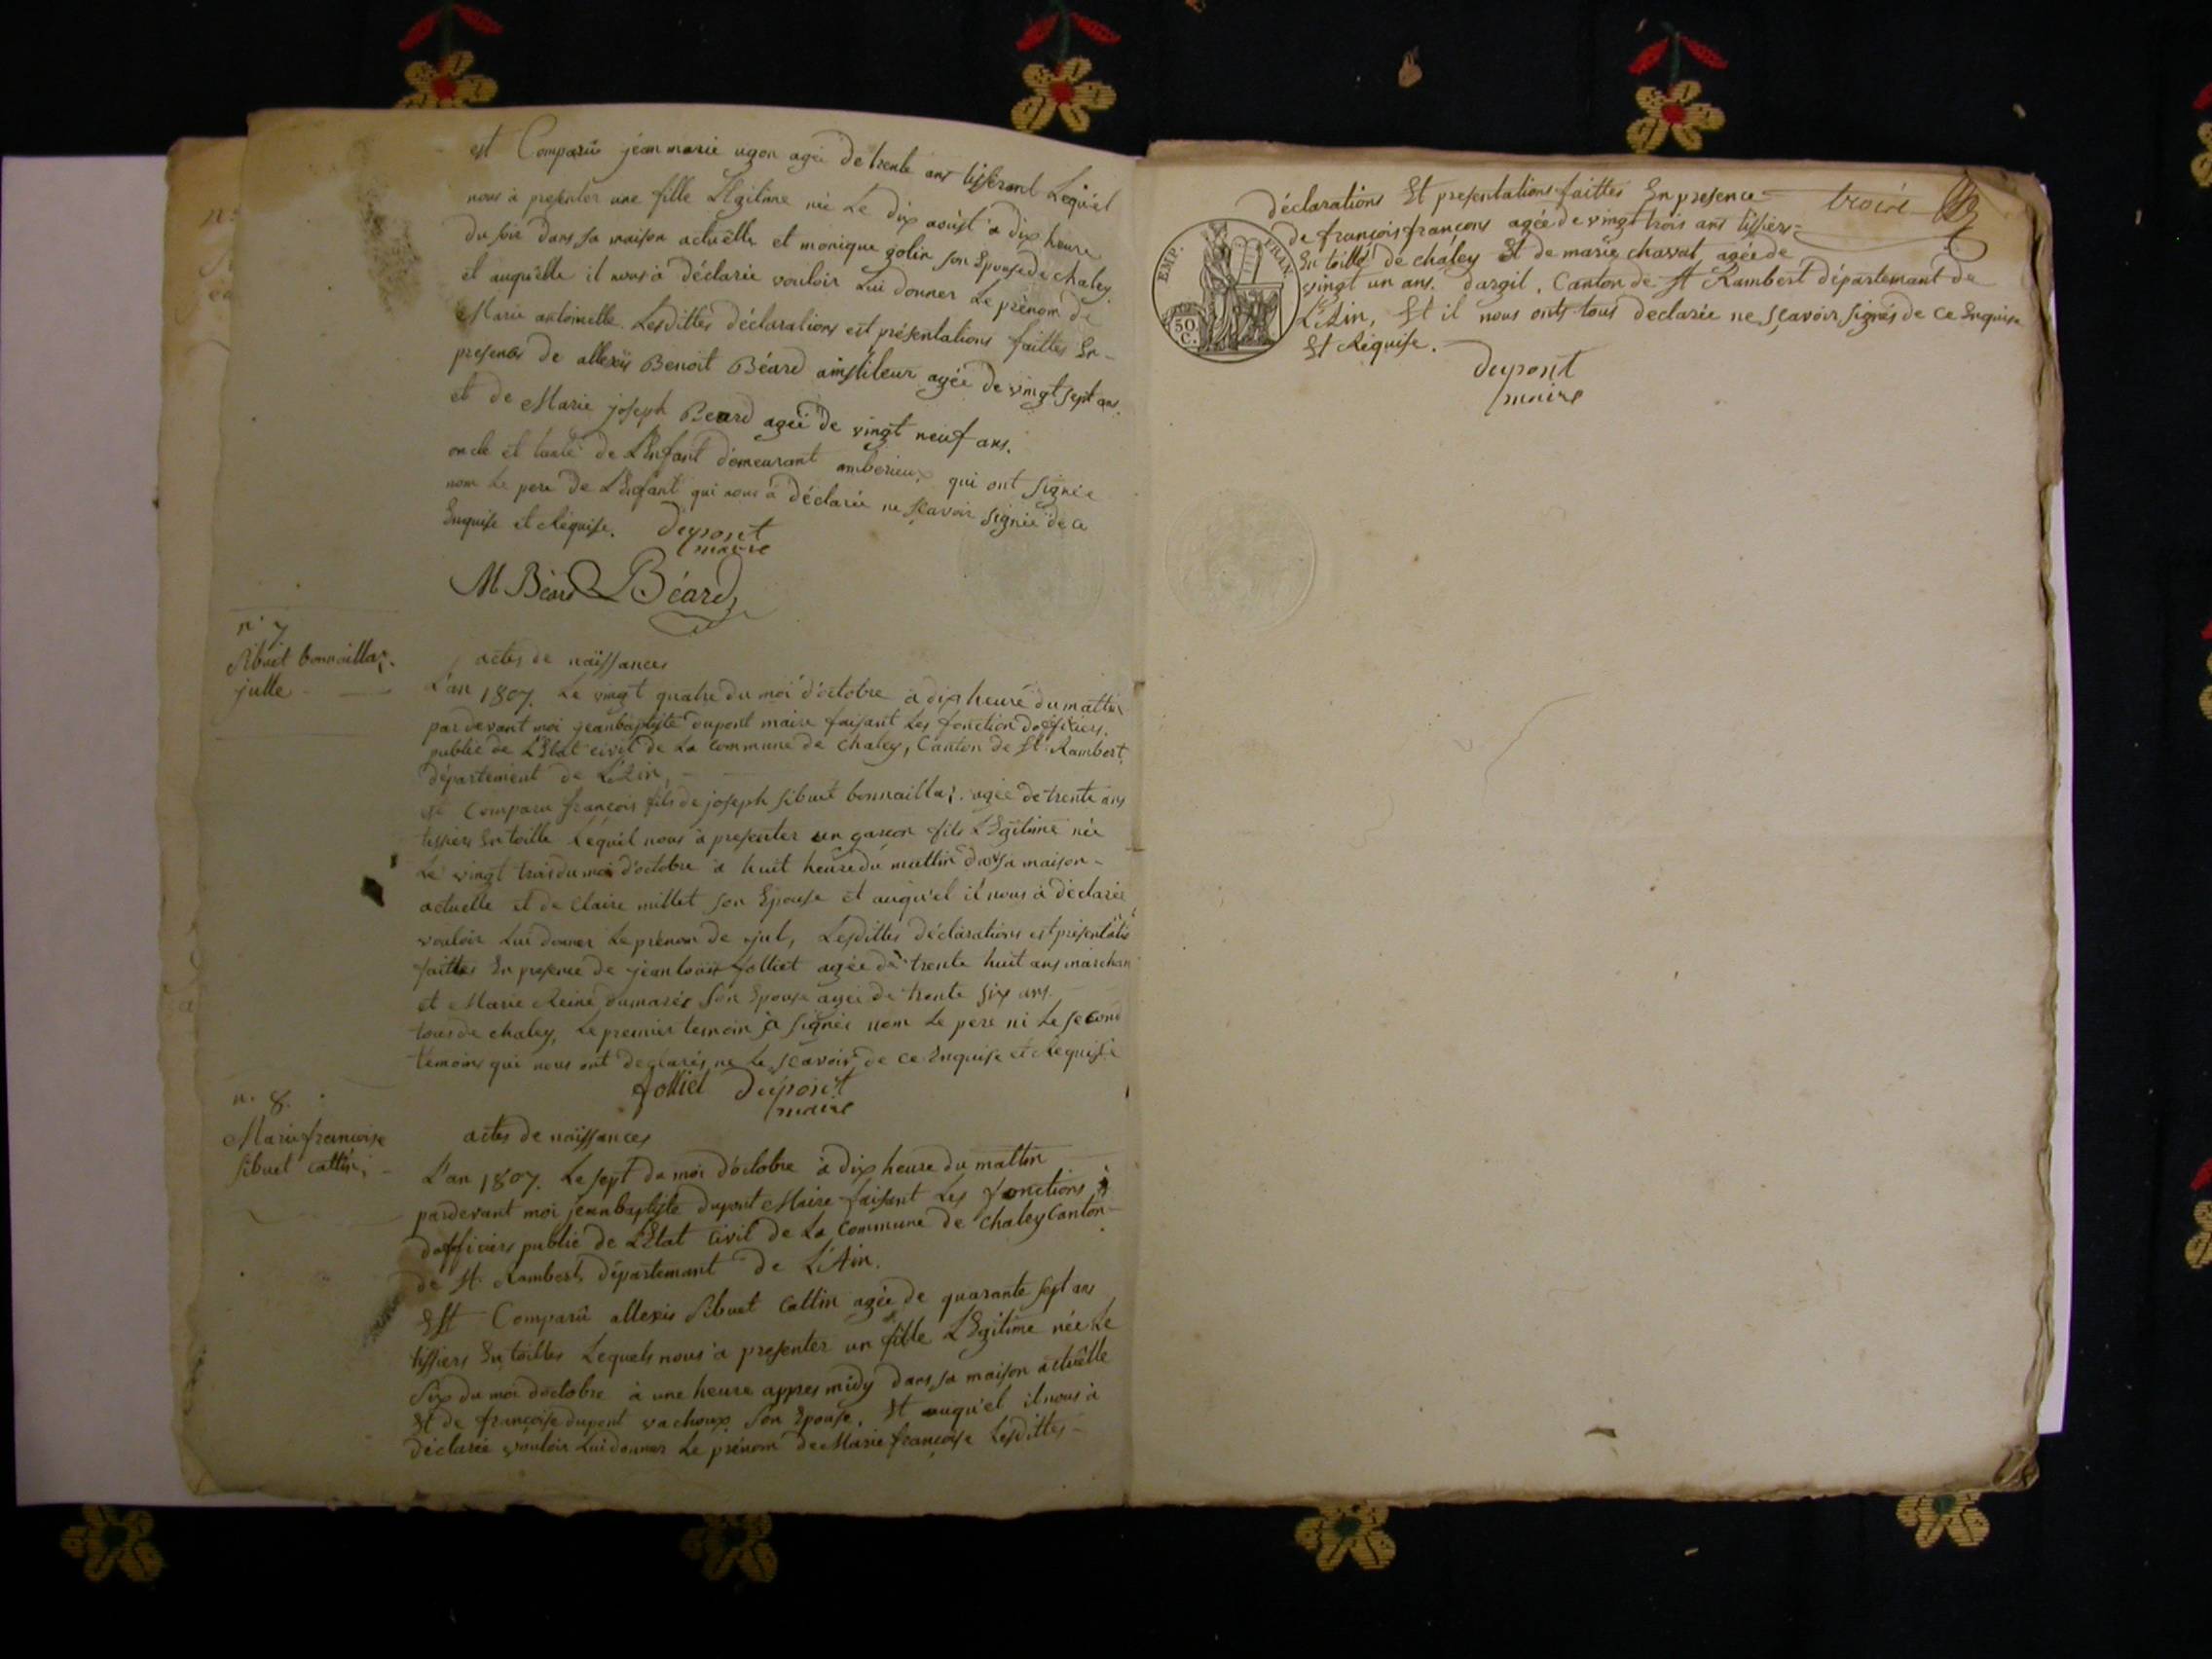 est Comparû jéan marie ugon agée de trente ans tisserant Lequ'el
nous à presenter une fille LEgitime née Le dix aoust à dix heure
du soir dans sa maison actuëlle et monique golin son Epouse de chaley
et auqu'elle il nous à déclarée vouloir Lui donner Le prènom de
Marie antoinette Lesdittes déclarations est présentations faittes En-
presence de allexis Benoit Béard amstiteur agée de vingt sept ans
et de Marie joseph Beard ageé de vingt neuf ans.
oncle et tante de L'Enfant demeurant amberieux qui ont signée
nom Le pere de L'Enfant qui nous à Déclarée ne sçavoir signée de ce
Enquise et Réquise. dupont
maire
M Béard Béard
n° 7
Sibuet bonnaillaz.
julle
actes de naissances
L'an 1807. Le vingt quatre du moi d'octobre à dix heure du mattin
pardevant moi jeanbaptiste dupont maire faisant Les fonction d'officiers.
public de L'Etat civil de La commune de chaley, Canton de St Rambert,
département de L'Ain,
est Comparu françois fils de joseph sibuet bonnaillaz. agée de trente ans
tissiers En toille Lequ'el nous à presenter un garcon fils LEgitime née
Le vingt trois du moi d'octobre à huit heure du mattin dans sa maison-
actuelle et de Claire millet son Epouse et auqu'el il nous à déclarée
vouloir Lui donner Le prénom de jul, Lesdittes déclarations est présentatis
faittes En presence de jean loüis folliet agée de trente huit ans marchan
et Marie Reine dumarés son Epouse agée de trente six ans.
tous de chaley, Le premier temoin à signée nom Le pere ni Le second
temoins qui nous ont declarés ne Le sçavoir de ce Enquise et Requise
folliet dupont
maire
n. 8.
Marie françoise
sibuet cattin.
actes de naissances
L'an 1807. Le sept du moi d'octobre à dix heure du mattin
pardevant moi jeanbaptiste dupont Maire faisant Les fonctions
d'officiers public de L'Etat Civil de La Commune de chaley Canton-
de St. Rambert, département de L'Ain.
Est Comparû allexis Sibuet Cattin agée de quarante sept ans
tissiers En toilles Lequels nous à presenter un fille LEgitime née Le
six du moi d'octobre à une heure appres midy dans sa maison actuëlle
Et de françoise dupont vachoux son Epouse. Et auqu'el il nous à
déclarée vouloir Lui donner Le prénom de Marie françoise Lesdittes-
déclarations Et presentations faittes En presence troisé
de françois françons agée de vingt trois ans tissiers-
En toille de chaley Et de marie chavat, agée de
vingt un ans. dargil, Canton de St Rambert département de
L'Ain, Et il nous onts tous declarée ne sçavoir signés de ce Enquise
Et Réquise.
dupont
maire
EMP. FRAN.
50
C.